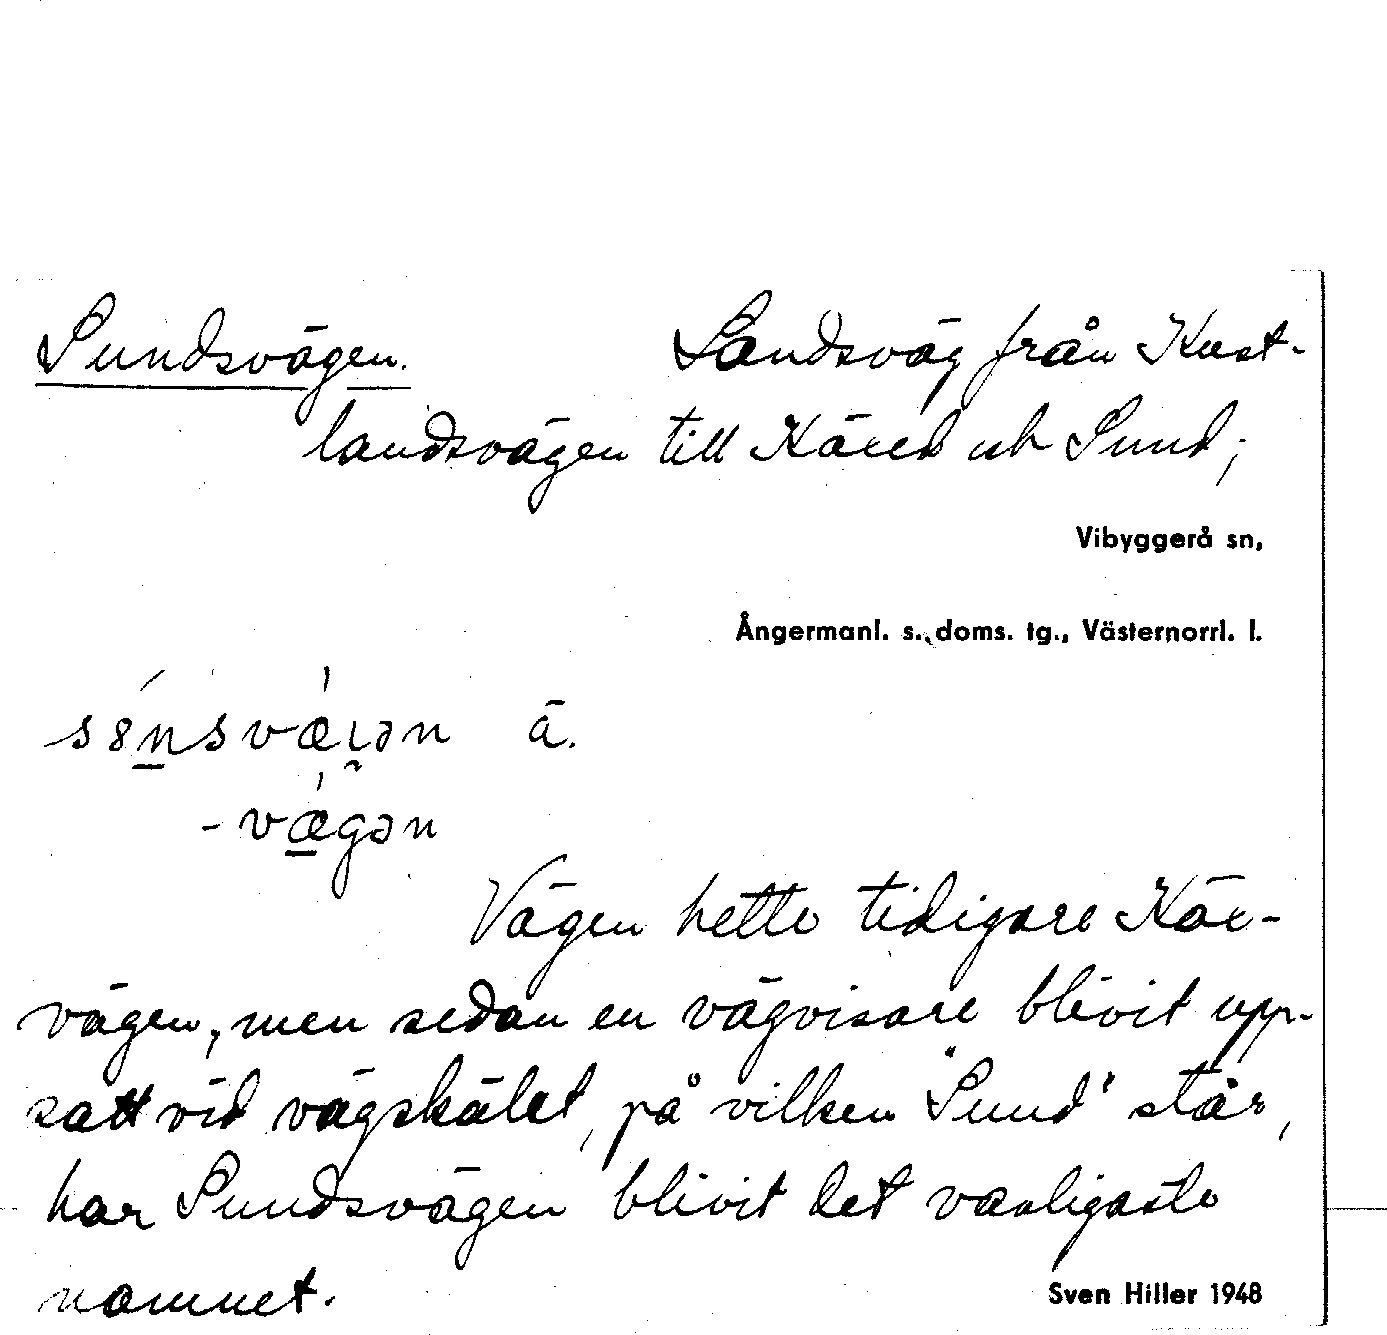 Sundsvägen. Landsväg från Kust-
landsvägen till Käxed och Sund;
Vibyggerå sn,
Ångermanl. s. doms. tg., Västernorrl. l.
ā.
Vägen hette tidigare Käx-
vägen, men sedan en vägvisare blivit upp-
satt vid vägskälet, på vilken "Sund" står,
har Sundsvägen blivit det vanligaste
namnet.
Sven Hiller 1948